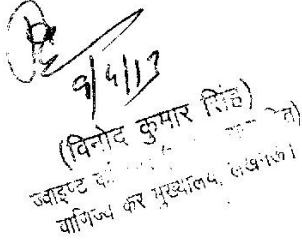 9/4/13
(विनोद कुमार सिंह)
ज्वाइण्ट
वाणिज्य कर मुख्यालय, लखनऊ।